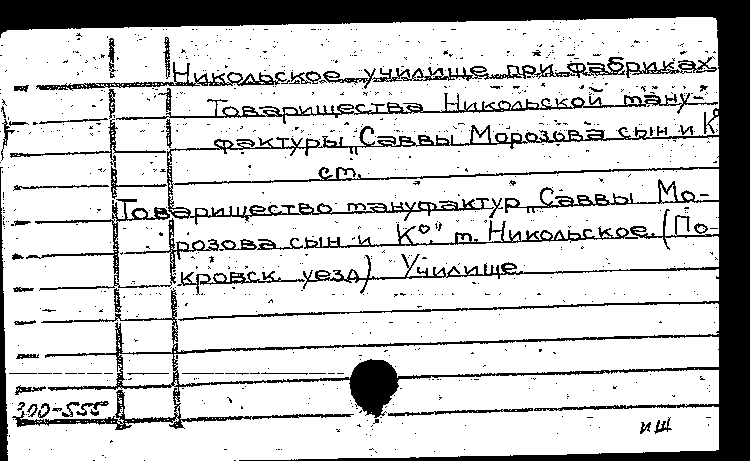 Никольское училище при фабриках
Товарищества Никольской ману-
фактуры „Саввы Морозова сын и Кº
ст.
Товарищество мануфактур „Саввы Мо-
розова сын и Кº." м. Никольское. (По-
кровск. уезд) Училище.
300-555
ИШ